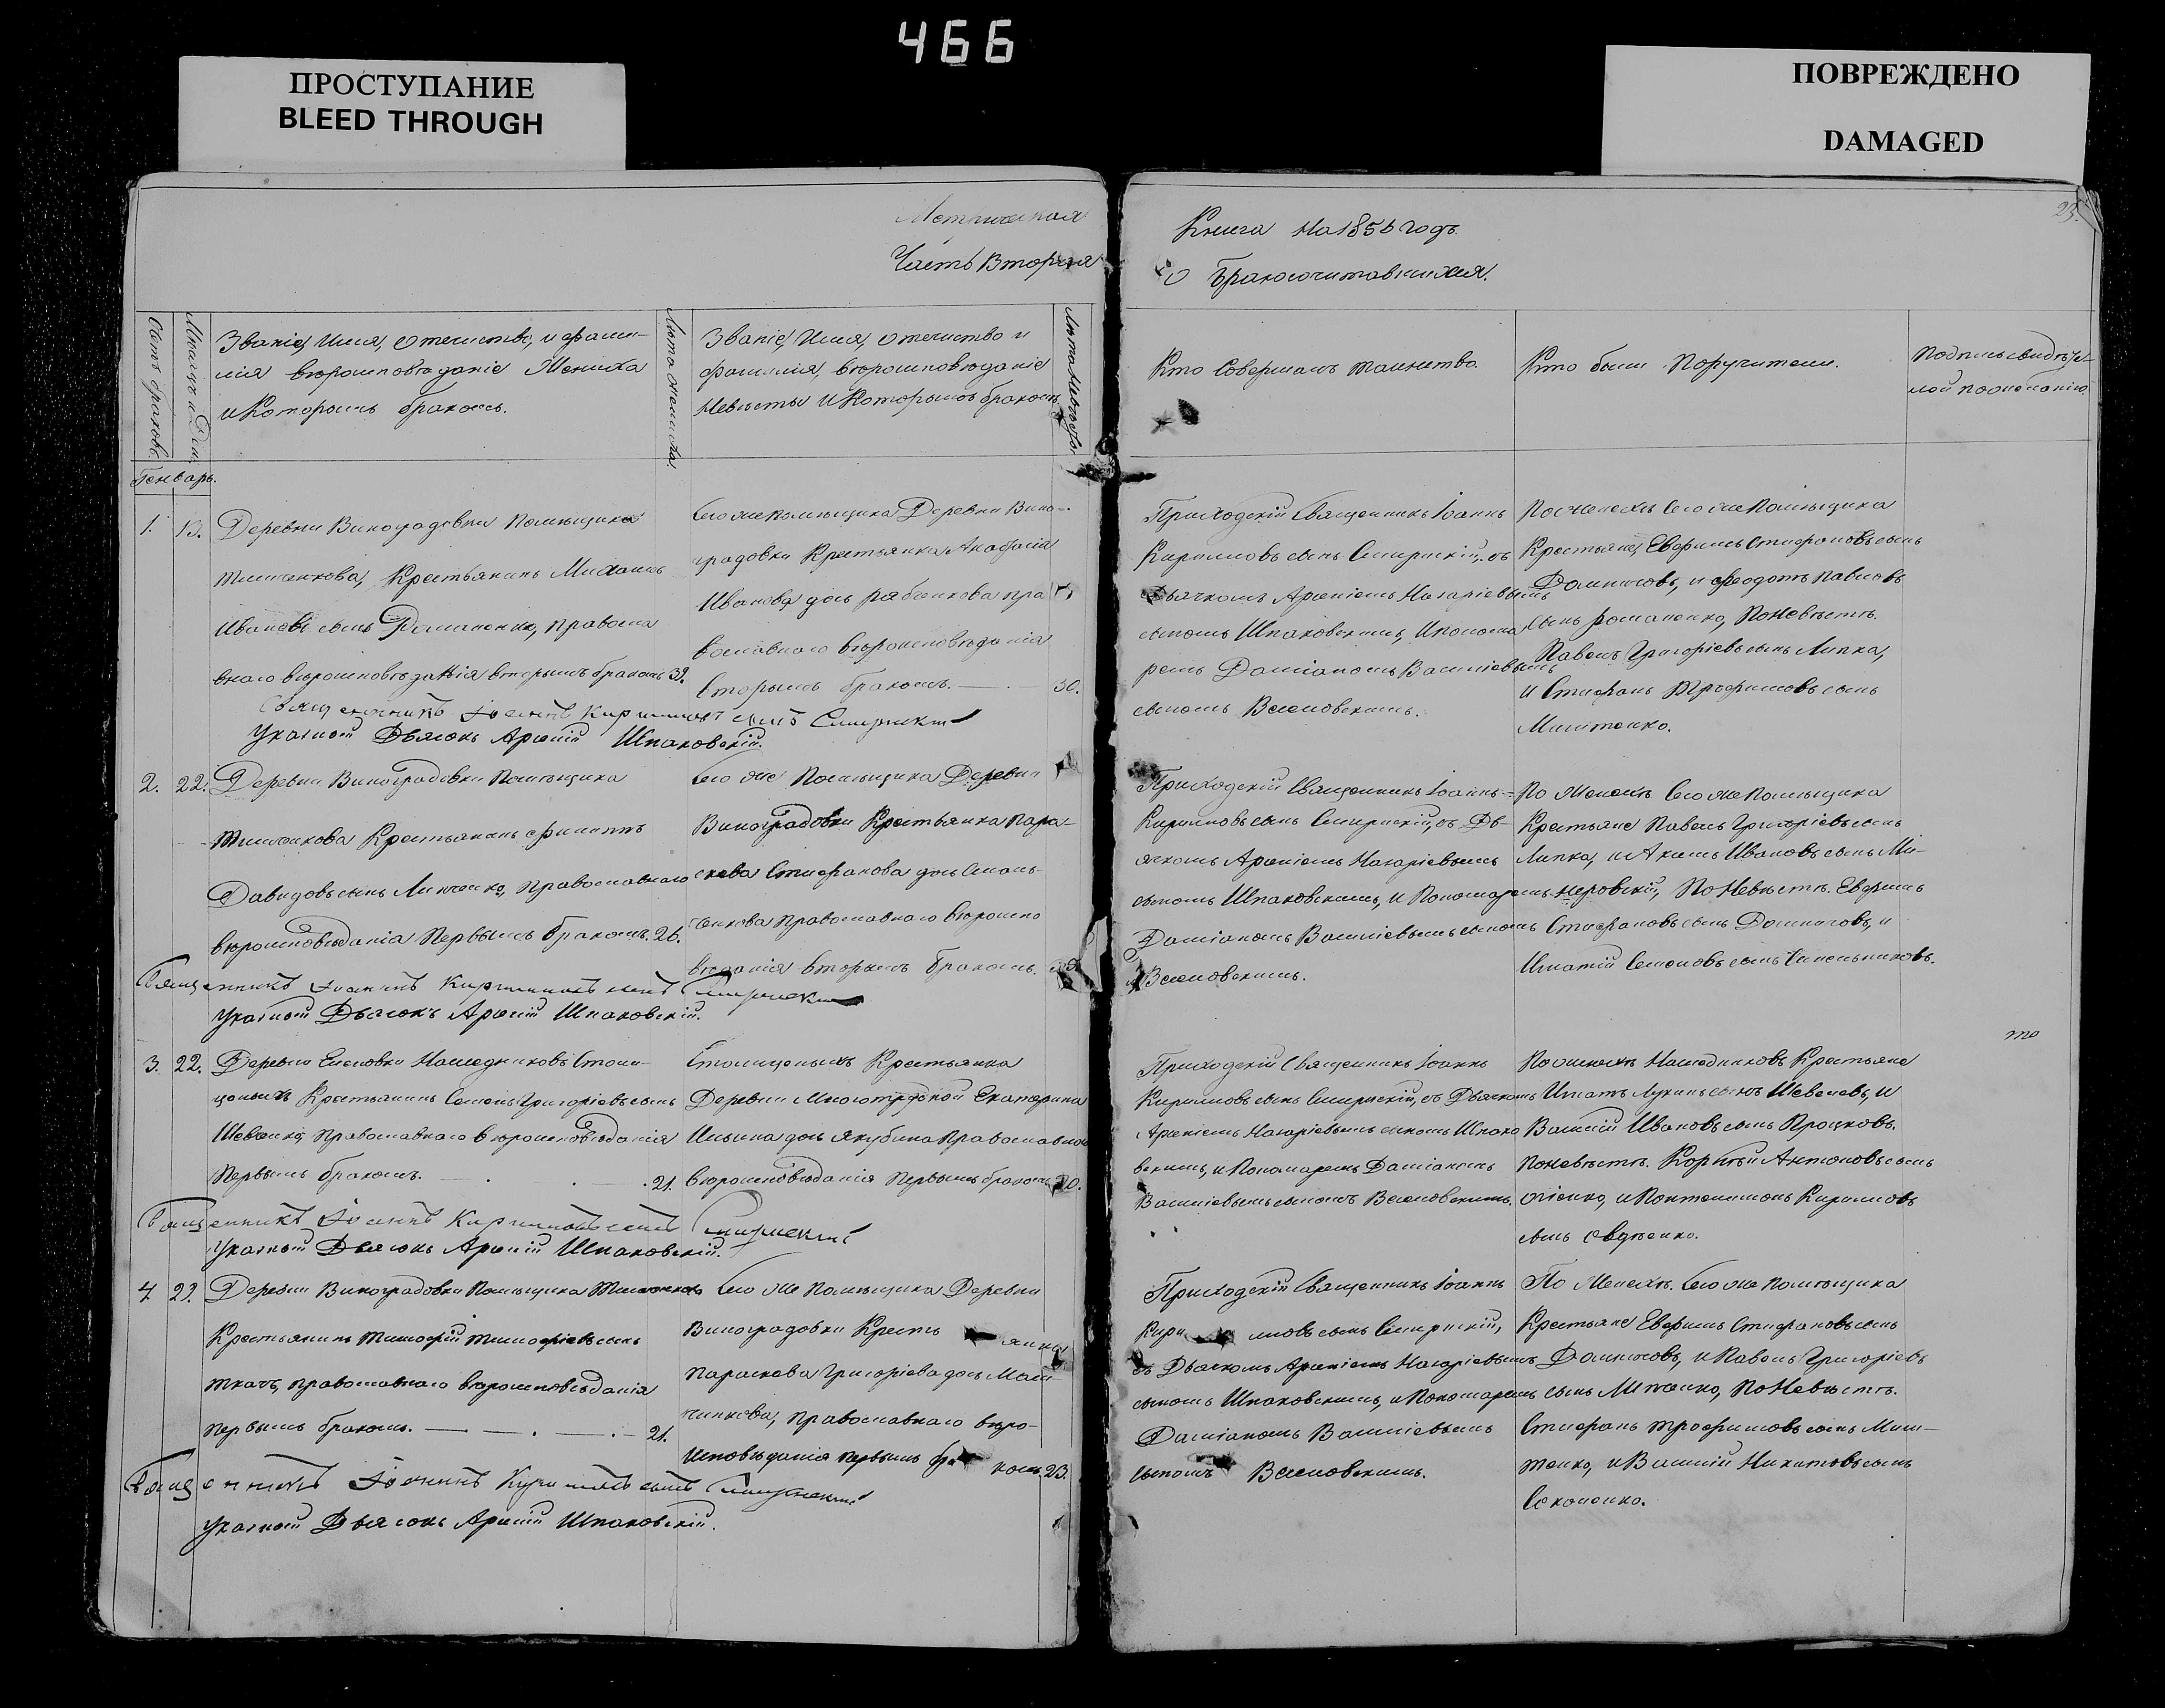 466
ПРОСТУПАНИЕ
BLEED THROUGH
ПОВРЕЖДЕНО
DAMAGED
23.
Метрическая
Часть Вторая
Книга на 1856 годъ.
О Бракосочитавшихся.
Счетъ браковъ.
Мѣсяцъ и Дни.
Званіе, Имя, Отечиство, и фами-
лія вѣроисповѣданіе Жениха
и Которымъ бракомъ.
Лѣта Жениха.
Званіе, Имя, Отечиство и
фамилія, вѣроисповѣданіе
Невѣсты и Которымъ бракомъ
Лѣта Невѣсты.
Кто Совершалъ таинство.
Кто были Поручители.
Генварь.
1. 13.
Деревни Виноградовки Помѣщика
Крестьянинъ Михаилъ
Ивановъ сынъ Романенко, Правосла
внаго вѣроисповѣданія вторымъ бракомъ 39.
Его же Помѣщика Деревни Вино-
градовки Крестьянка Агафія
Иванова дочь Рябенкова пра
вославнаго вѣроисповѣданія
Вторымъ бракомъ. 30.
Приходскій Священникъ Іоаннъ
Кирилловъ сынъ съ
Дьячкомъ Арсеніемъ Назаріевымъ
сыномъ Шпаковскимъ, и понома
ремъ Даміаномъ Василіевымъ
сыномъ
По женихѣ Его же Помѣщика
Крестьяне, Ефимъ Стефановъ сынъ
и Феодотъ Павловъ
сынъ Романенко, По Невѣстѣ.
Павелъ Григоріевъ сынъ Липка,
и Стефанъ Трофимовъ сынъ
Священникъ Іоаннъ Кирилловъ сынъ
Указной Дьячокъ Арсеній Шпаковскій.
2. 22.
Деревни Виноградовки Помѣщика
Крестьянинъ Филиппъ
Давидовъ сынъ Православнаго
вѣроисповѣданія Первымъ бракомъ. 26.
Его же Помѣщика Деревни
Виноградовки Крестьянка Пара-
скева Стефанова дочь
Православнаго вѣроиспо
вѣданія вторымъ бракомъ.
Приходскій Священникъ Іоаннъ
Кирилловъ сынъ съ Дь-
ячкомъ Арсеніемъ Назаріевымъ
сыномъ Шпаковскимъ, и Пономаремъ
Даміаномъ Василіевымъ сыномъ
По Женихѣ Его же Помѣщика
Крестьяне Павелъ Григоріевъ сынъ
Липка, и Акимъ Ивановъ сынъ Ми-
неровскій, По Невѣстѣ. Ефимъ
Стефановъ сынъ и
Игнатій Семеновъ сынъ Синельниковъ.
Священникъ Іоаннъ Кирилловъ сынъ
Указной Дьячокъ Арсеній Шпаковскій.
3. 22.
Деревни Наследниковъ
Крестьянинъ Семенъ Григоріевъ сынъ
Шевченко, Православнаго вѣроисповѣданія
Первымъ бракомъ. 21.
Крестьянка
Деревни Многотрудной Екатерина
Ильина дочь Якубина Православнаго
вѣроисповѣданія Первымъ бракомъ 20.
Приходскій Священникъ Іоаннъ
Кирилловъ сынъ съ Дьячкомъ
Арсеніемъ Назаріевымъ сыномъ Шпако
вскимъ, и Пономаремъ Даміаномъ
Василіевымъ сыномъ
По женихѣ Наследниковъ Крестьяне
Игнатъ Лукинъ сынъ Шевелевъ, и
Василій Ивановъ сынъ Процковъ.
По невѣстѣ. Корнѣй Антоновъ сынъ
и Пантелимонъ Кирилловъ
сынъ
Священникъ Іоаннъ Кирилловъ сынъ
Указной Дьячокъ Арсеній Шпаковскій.
4.
Деревни Виноградовки Помѣщика
Крестьянинъ Тимофій Тимофіевъ сынъ
Ткачъ, православнаго вѣроисповѣданія
первымъ бракомъ. 21.
Его же Помѣщика Деревни
Виноградовки Кресть янка
Параскева Григоріева дочь
православнаго вѣро-
исповѣданія первымъ бра комъ 23.
Приходскій Священникъ Іоаннъ
Кири лловъ сынъ
съ Дьячкомъ Арсеніемъ Назаріевымъ
сыномъ Шпаковскимъ, и Пономаремъ
Даміаномъ Василіевымъ
сыномъ
По Женихѣ. Его же помѣщика
Крестьяне Ефимъ Стефановъ сынъ
и Павелъ Григоріевъ
сынъ По Невѣстѣ.
Стефанъ Трофимовъ сынъ
и Василій Никитовъ сынъ
Соколенко.
Священникъ Іоаннъ Кирилловъ сынъ
Указной Дьячокъ Арсеній Шпаковскій.